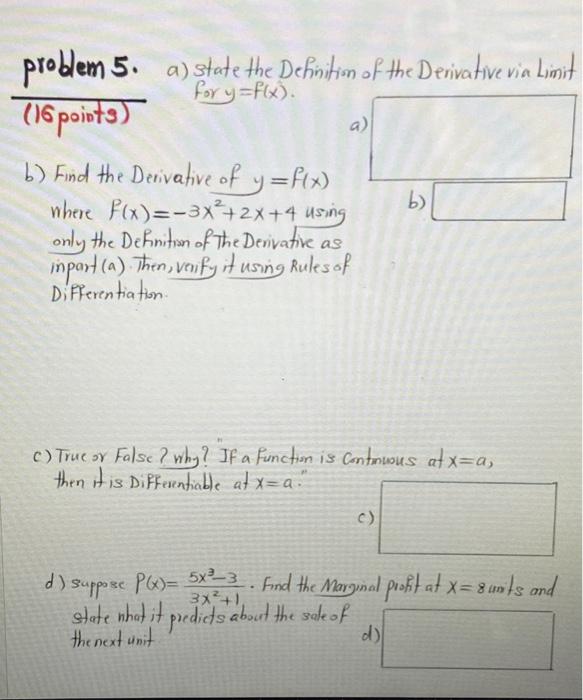 problem 5. a) state the Definition of the Derivative via Limit
for y=f(x).
(16 points)
a)
b) Find the Derivative of y=f(x)
where f(x)=-3x²+2x+4 using
b)
only the Definition of The Derivative as
inpart (a). Then, verify it using Rules of
Differentiation.
c) True or False? why? "If a function is Continuous at x=a,
then it is Differentiable at x=a."
c)
d) suppose P(x)= 5x³-3 / 3x²+1 . Find the Marginal profit at x=8 units and
state what it predicts about the sale of
the next unit
d)